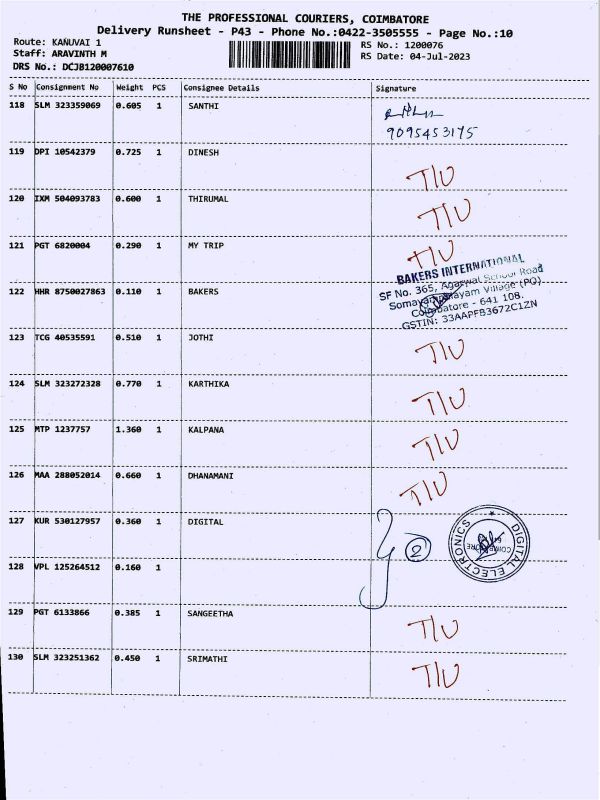 THE PROFESSIONAL COURIERS, COIMBATORE
Delivery Runsheet - P43 - Phone No.:0422-3505555 - Page No.:10
Route: KANUVAI 1
RS No.: 1200076
Staff: ARAVINTH M
RS Date: 04-Jul-2023
DRS No.: DCJB120007610
S No Consignment No Weight PCS Consignee Details Signature
118 SLM 323359069 0.605 1 SANTHI
9095453175
119 DPI 10542379 0.725 1 DINESH T/U
120 IXM 504093783 0.600 1 THIRUMAL T/U
121 PGT 6820004 0.290 1 MY TRIP T/U
BAKERS INTERNATIONAL
SF No. 365, Agarwal School Road
Somayampalayam Village (PO)
Coimbatore - 641 108.
GSTIN: 33AAPFB3672C1ZN
122 HHR 8750027863 0.110 1 BAKERS
123 TCG 40535591 0.510 1 JOTHI T/U
124 SLM 323272328 0.770 1 KARTHIKA T/U
125 MTP 1237757 1.360 1 KALPANA T/U
126 MAA 288052014 0.660 1 DHANAMANI T/U
127 KUR 530127957 0.360 1 DIGITAL 2
DIGITAL ELECTRONICS
128 VPL 125264512 0.160 1
129 PGT 6133866 0.385 1 SANGEETHA T/U
130 SLM 323251362 0.450 1 SRIMATHI T/U